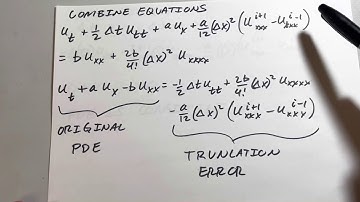 COMBINE EQUATIONS
u_t + 1/2 Δt u_tt + a u_x + a/12 (Δx)² (u_xxx^{i+1} - u_xxx^{i-1})
= b u_xx + 2b/4! (Δx)² u_xxxx
u_t + a u_x - b u_xx = -1/2 Δt u_tt + 2b/4! (Δx)² u_xxxx
a/12 (Δx)² (u_xxx^{i+1} - u_xxx^{i-1})
ORIGINAL
PDE
TRUNCATION
ERROR